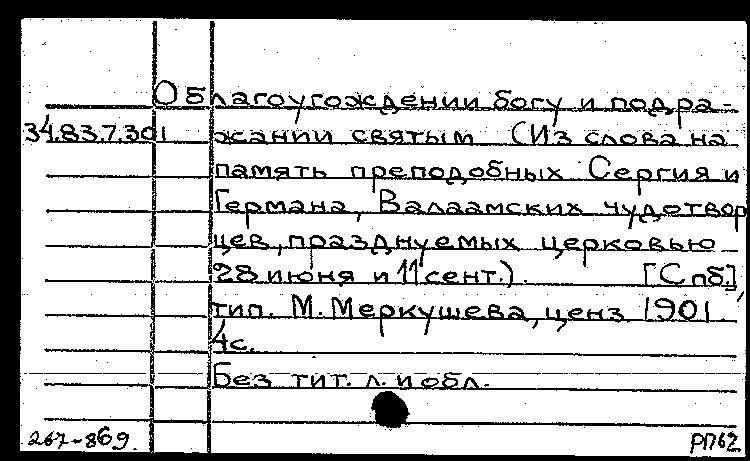 О Благоугождении богу и подра-
34.83.7.301 жании святым (Из слова на
память преподобных Сергия и
Германа, Валаамских чудотвор
цев, празднуемых церковью
28 июня и 11 сент.). [Спб.],
тип. М. Меркушева, ценз 1901.
4с.
Без тит. л. и обл.
267-869. РП62